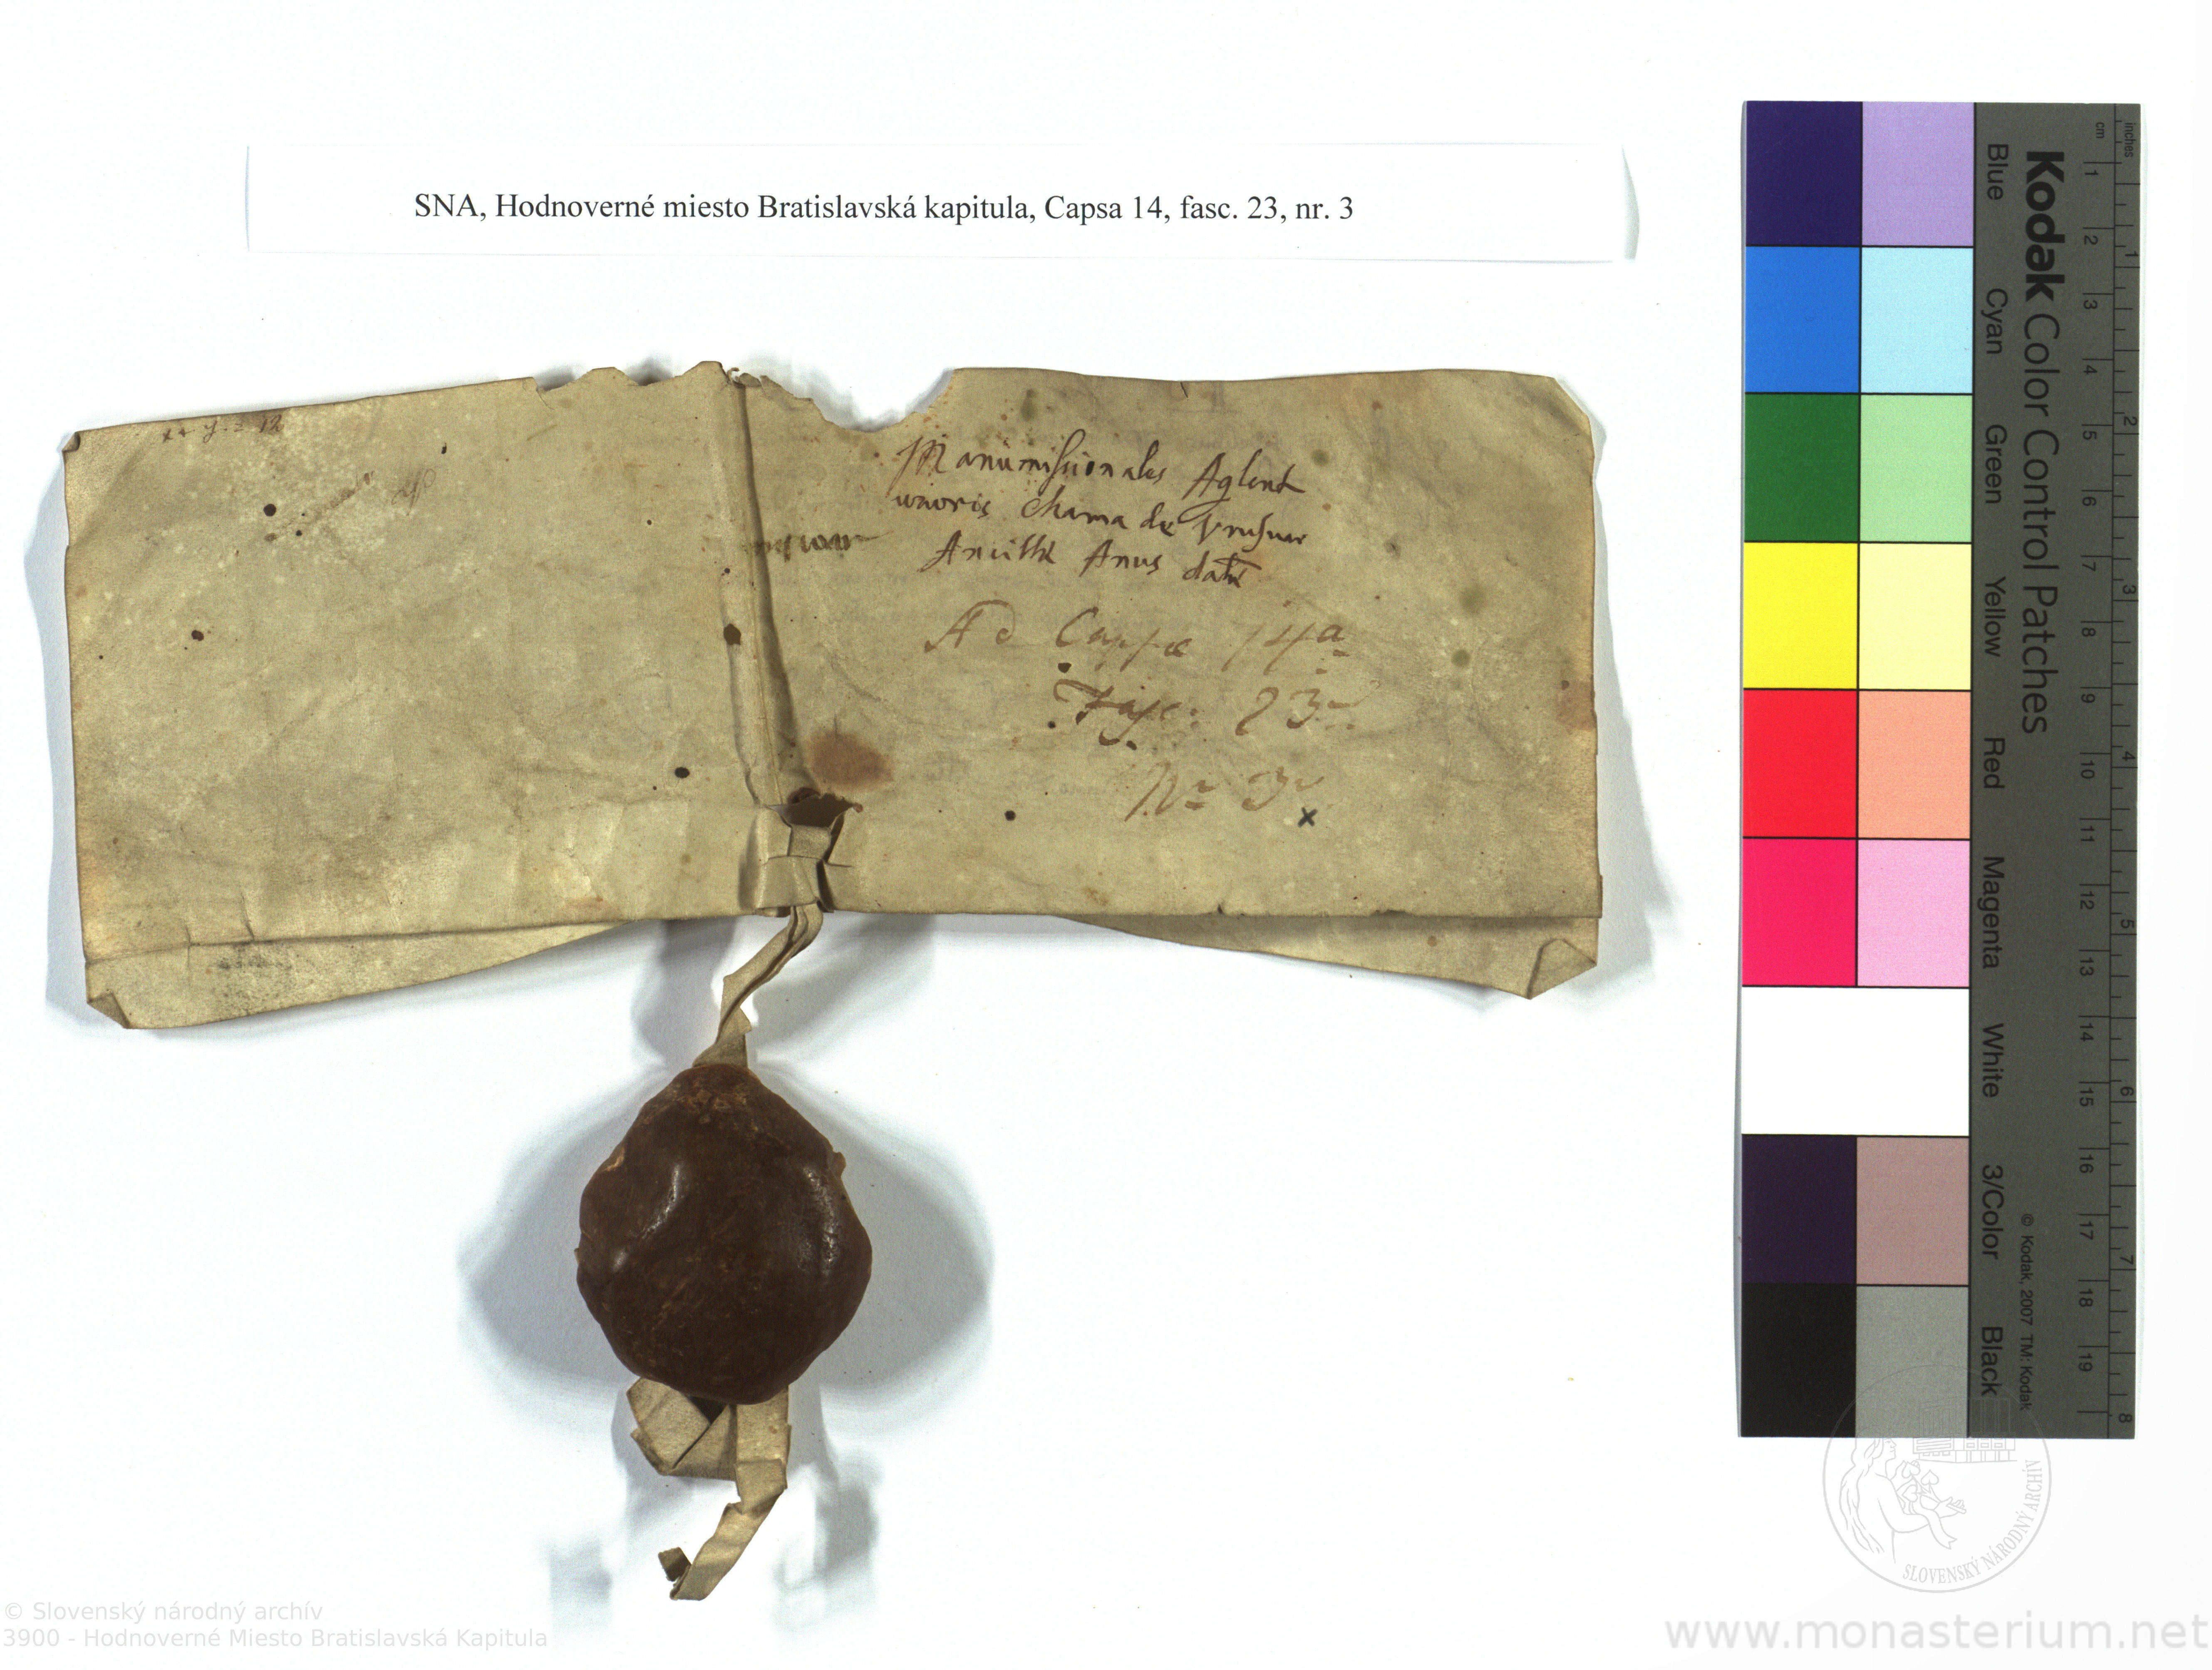 SNA, Hodnoverné miesto Bratislavská kapitula, Capsa 14, fasc. 23, nr. 3
Manumissionales Aglent
uxoris Chama de
Ancille Anus date
Ad Capsæ 14a
Fasc: 23
Nr 3
x
Kodak Color Control Patches
Blue Cyan Green Yellow Red Magenta White 3/Color Black
© Kodak, 2007 TM: Kodak
cm 1 2 3 4 5 6 7 8 9 10 11 12 13 14 15 16 17 18 19
inches 1 2 3 4 5 6 7 8
SLOVENSKÝ NÁRODNÝ ARCHÍV
© Slovenský národný archív
3900 - Hodnoverné Miesto Bratislavská Kapitula
www.monasterium.net